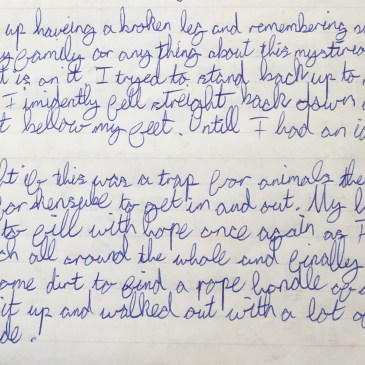 up haveing a broken leg and remembering
family or any thing about this mysterio
is on it I tryed to stand back up to
I imidently fell streight back down
bellow my feet. Untill I had an id
if this was a trap for animals the
to get in and out. My
to fill with hope once again as I
all around the whole and finally
ome dirt to find a rope handle
it up and walked out with a lot o
de.